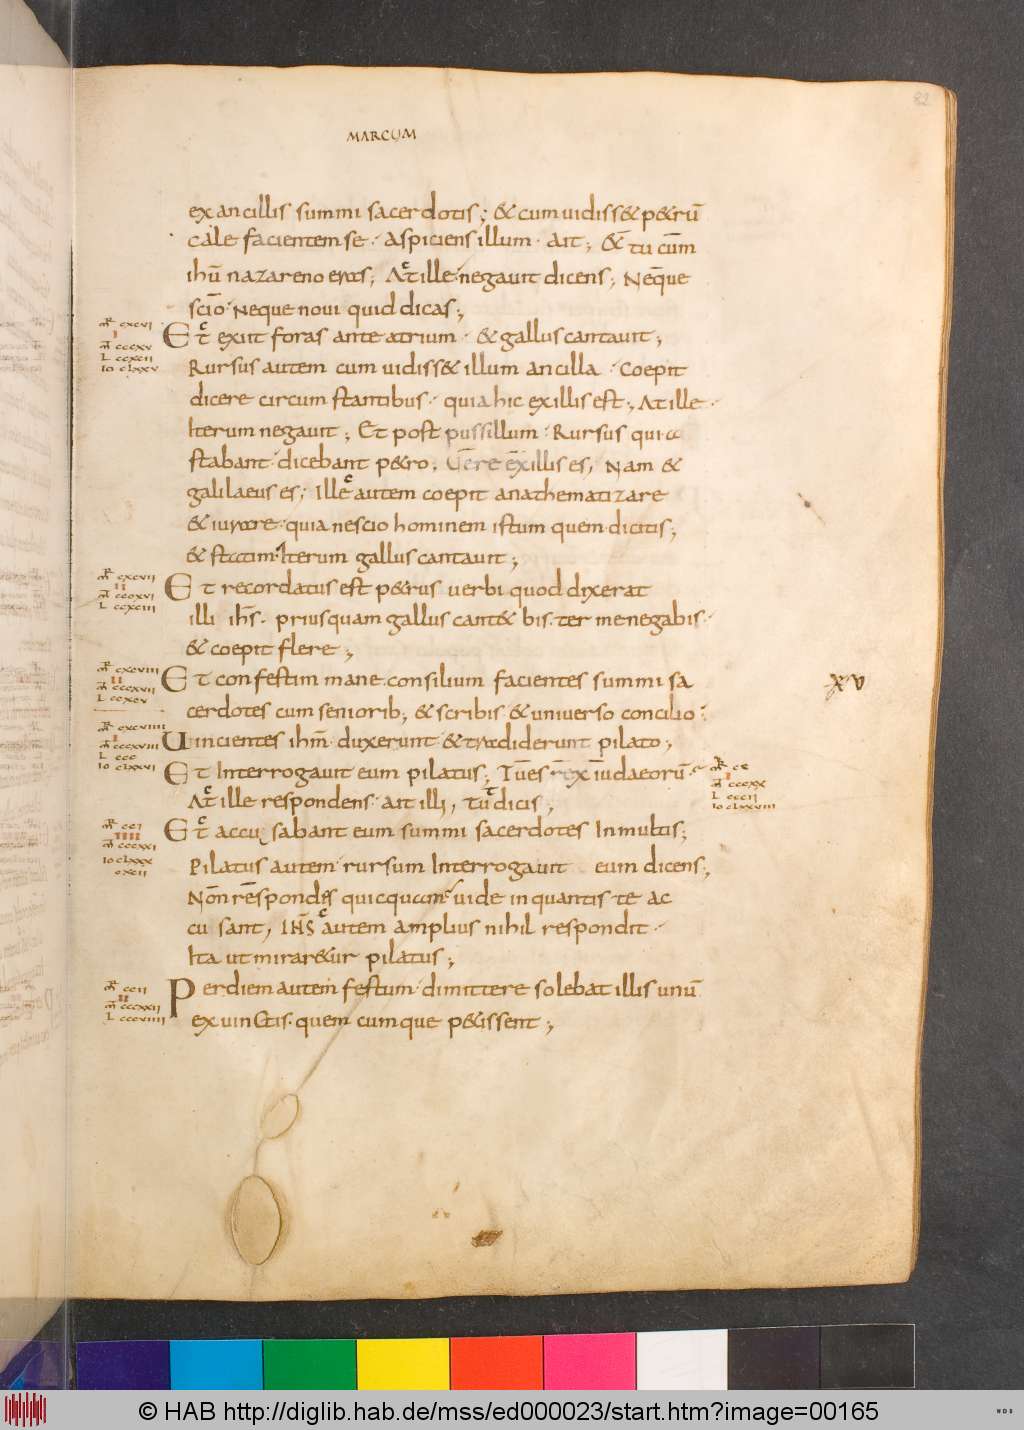 82
MARCUM
ex ancillis summi sacerdotis; & cum uidiss& p&rū
cale facientem se · aspiciens illum · ait; &̄ tu cum
ihū nazareno eras; At ille negauit dicens; Neque
scio · neque noui quid dicas;
mR cxcvi
I
m cccxv
L ccxcii
Io clxxv
Et exiit foras ante atrium · & gallus cantauit;
Rursus autem cum uidiss& illum ancilla · Coepit
dicere circum stantibus · quia hic ex illis est; At ille ·
Iterum negauit; Et post pussillum · Rursus qui a
stabant · dicebant p&ro; Uere ex illis es; Nam &
galilaeus es; Ille autem coepit anathematizare
& iurare · quia nescio hominem istum quem dicitis;
& statim · Iterum gallus cantauit;
mR cxcvii
II
m cccxvi
L ccxciii
Et recordatus est p&rus uerbi quod dixerat
illi ihs · priusquam gallus cant& bis · ter me negabis ·
& coepit flere;
mR cxcviii
II
m cccxvii
L ccxcv
Et confestim mane · consilium facientes summi sa
xv
cerdotes cum seniorib; & scribis & uniuerso concilio ·
mR cxcviiii
I
m cccxviii
L ccc
Io clxxvi
Uincientes ihm · duxerunt & tradiderunt pilato;
Et Interrogauit eum pilatus; Tu es rex iudaeorū ·
mR cc
I
m cccxx
L cccii
Io clxxviii
At ille respondens · ait illi, tu dicis;
mR cci
IIII
m cccxxi
Io clxxx
cxcii
Et accusabant eum summi sacerdotes In multis;
Pilatus autem · rursum Interrogauit eum dicens;
Non respondes quicquam · uide in quantis te ac
cusant, IHS autem amplius nihil respondit ·
Ita ut mirar&ur pilatus;
mR ccii
II
m cccxxii
L cccviiii
Per diem autem festum · dimittere solebat illis unū
ex uinctis · quem cumque p&issent;
© HAB http://diglib.hab.de/mss/ed000023/start.htm?image=00165